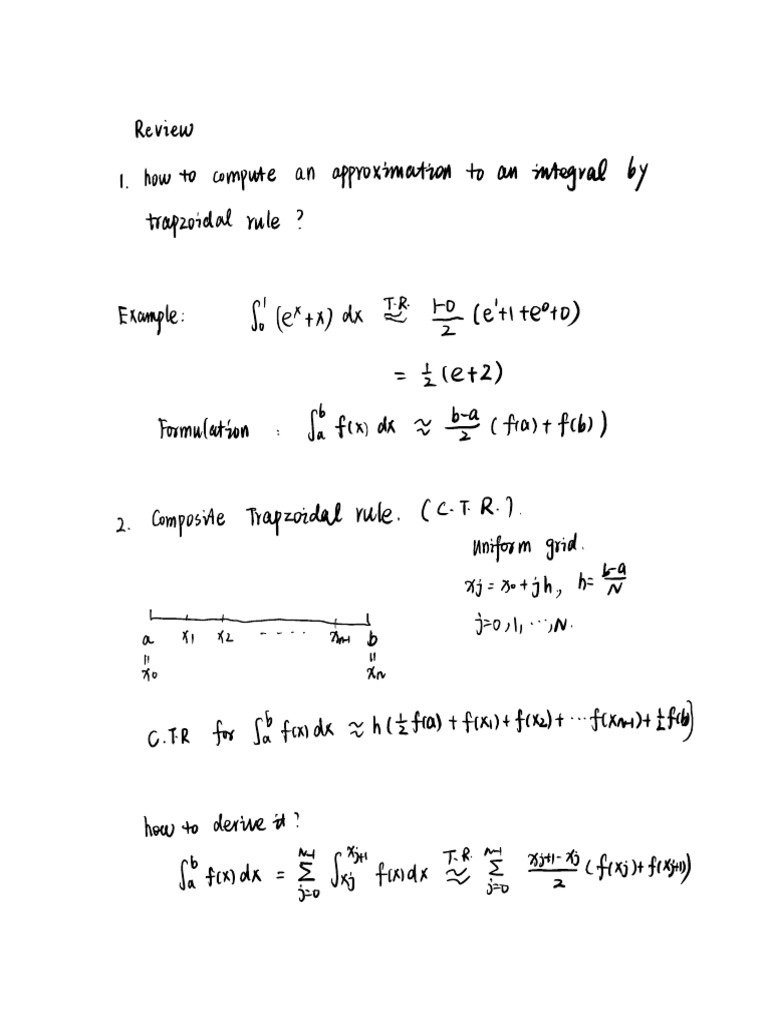 Review
1. how to compute an approximation to an integral by
trapzoidal rule ?
Example: ∫₀¹ (eˣ+x) dx ≈ (T.R.) (1-0)/2 (e¹+1+e⁰+0)
= 1/2 (e+2)
Formulation : ∫ₐᵇ f(x) dx ≈ (b-a)/2 (f(a)+f(b))
2. Composite Trapzoidal rule. (C.T.R.).
Uniform grid.
xj = x0 + jh, h = (b-a)/N
j=0,1,...,N.
a x1 x2 ---- xN-1 b
= =
x0 xN
C.T.R for ∫ₐᵇ f(x) dx ≈ h(1/2 f(a) + f(x1) + f(x2) + ... f(xN-1) + 1/2 f(b))
how to derive it?
∫ₐᵇ f(x) dx = Σ_{j=0}^{N-1} ∫_{xj}^{xj+1} f(x) dx ≈ (T.R.) Σ_{j=0}^{N-1} (xj+1 - xj)/2 (f(xj) + f(xj+1))